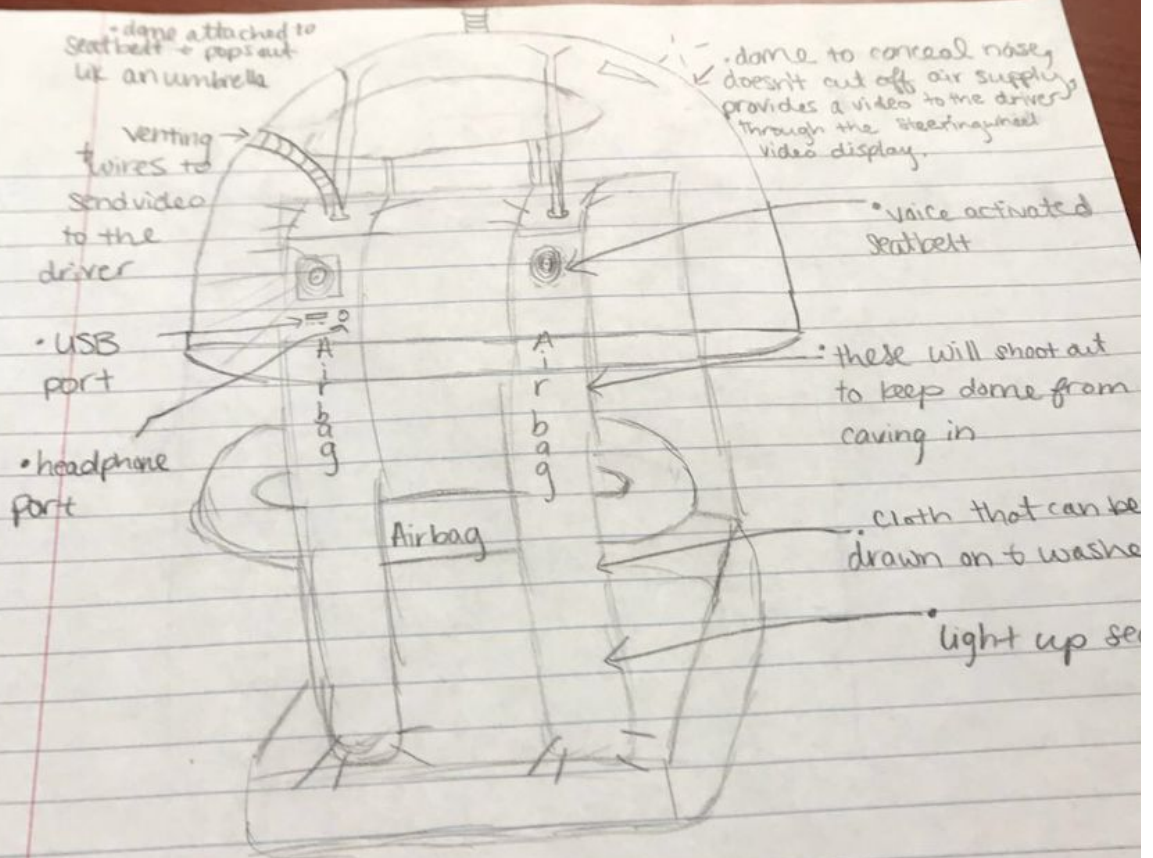 • dome attached to
seatbelt + pops out
lik an umbrella
venting
+ wires to
send video
to the
driver
• USB
port
• headphone
port
• dome to conceal nose,
doesn't cut off air supply,
provides a video to the driver
through the steeringwheel
video display.
• voice activated
seatbelt
• these will shoot out
to keep dome from
caving in
• cloth that can be
drawn on + washe
• light up sea
Airbag
Airbag
Airbag